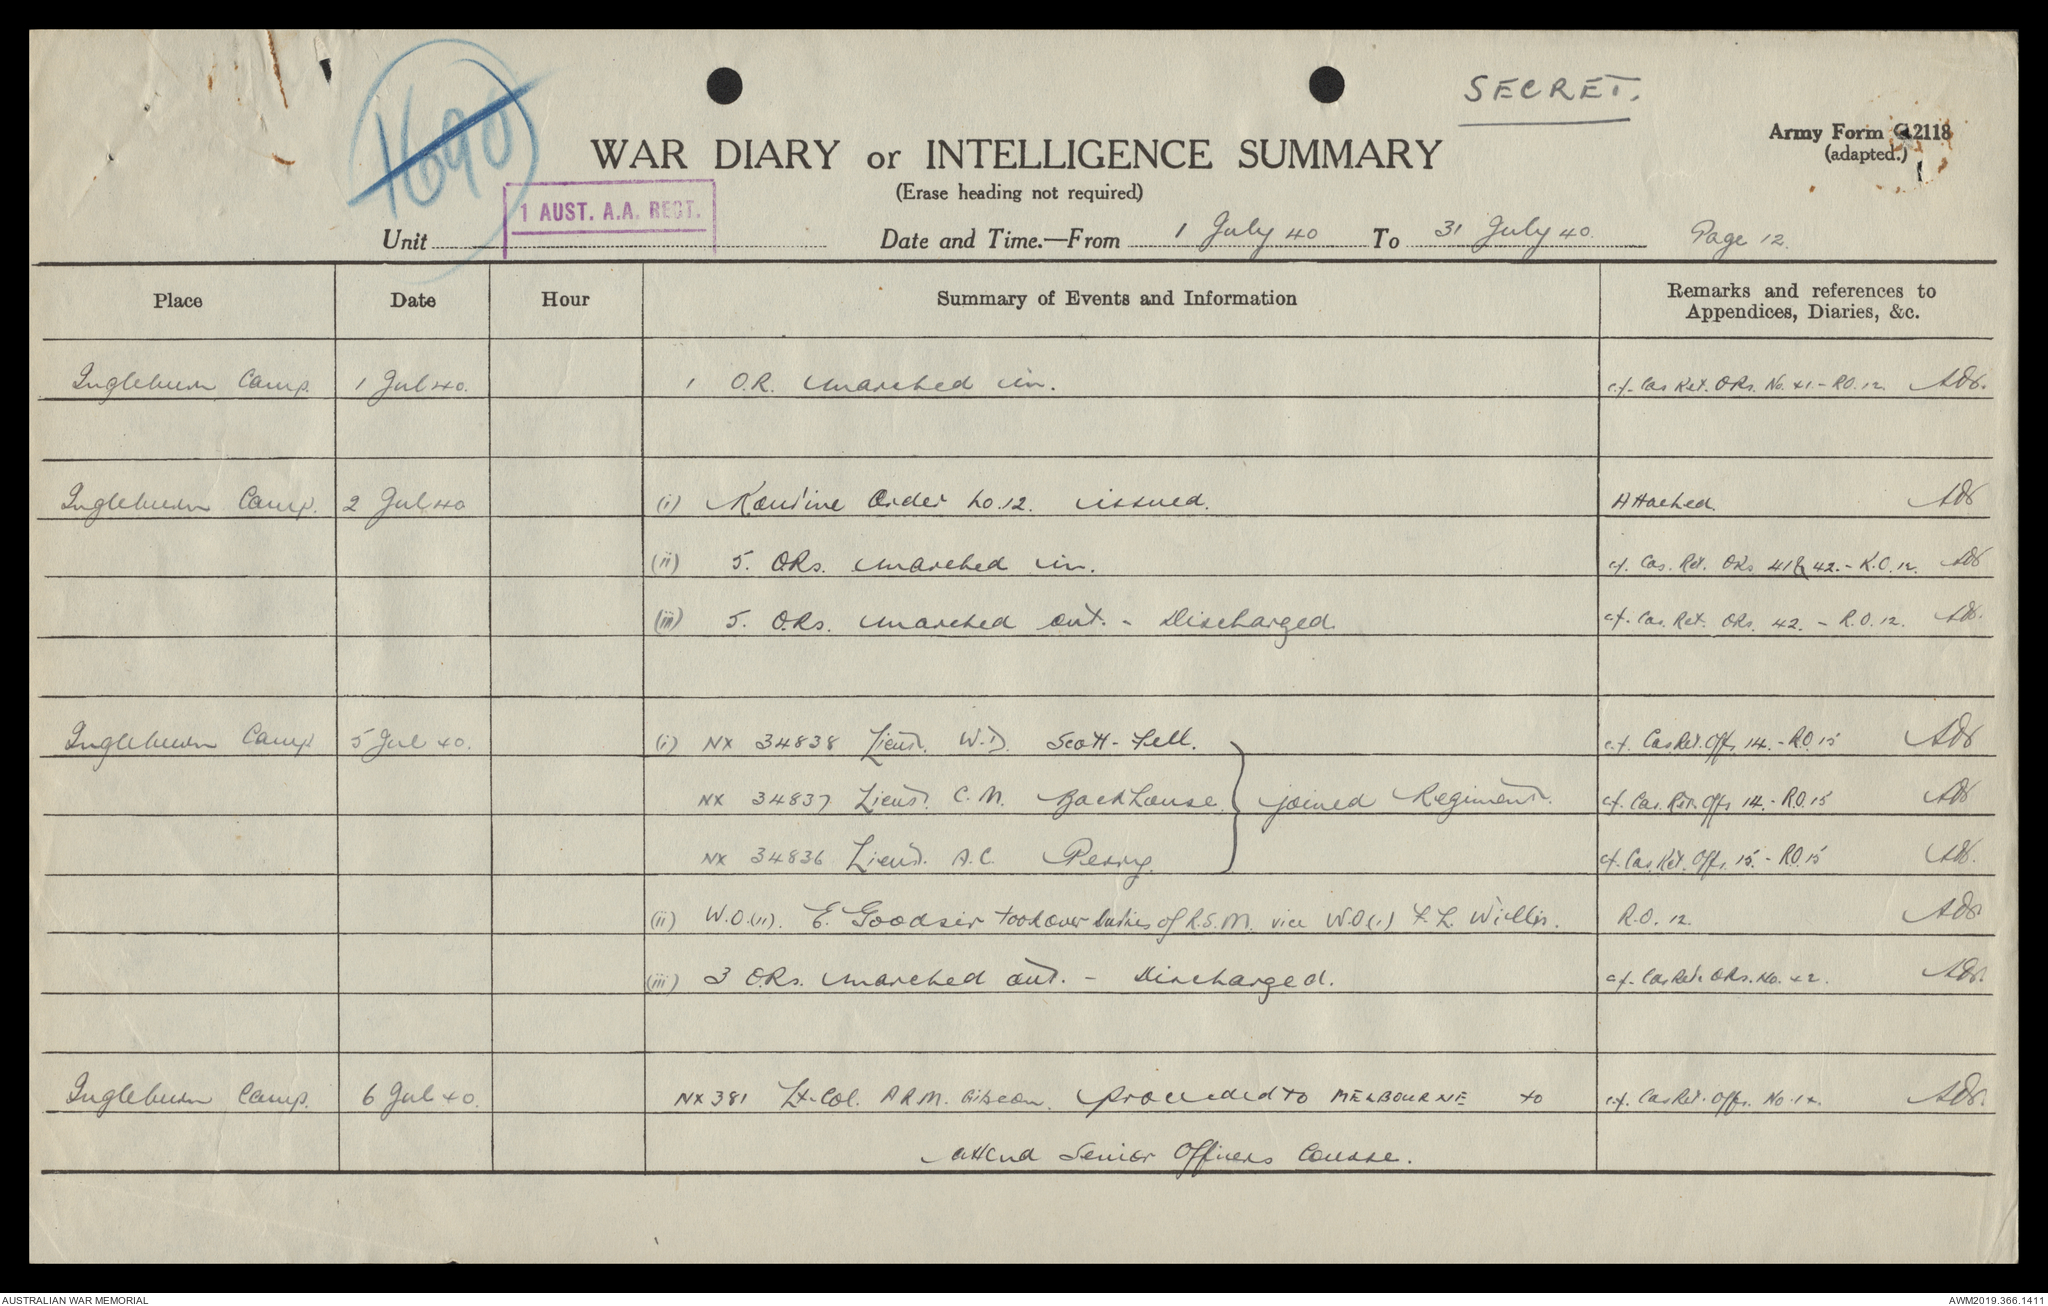 1690
SECRET.
WAR DIARY or INTELLIGENCE SUMMARY
Army Form C.2118
(adapted.)
(Erase heading not required)
1 AUST. A.A. REGT.
Unit Date and Time.—From 1 July 40 To 31 July 40. Page 12.
Place Date Hour Summary of Events and Information Remarks and references to
Appendices, Diaries, &c.
Ingleburn Camp. 1 Jul 40. 1 O.R. marched in. c.f. Cas Ret. ORs. No. 41 - RO. 12.
Ingleburn Camp. 2 Jul 40 (i) Routine Order No. 12. issued. Attached.
(ii) 5. ORs. marched in. c.f. Cas. Ret. ORs 41 & 42. - R.O. 12.
(iii) 5. ORs. marched out. - Discharged. c.f. Cas. Ret. ORs. 42. - R.O. 12.
Ingleburn Camp 5 Jul 40. (i) NX 34838 Lieut. W.D. Scott-Fell. c.f. Cas Ret. Offs 14. - RO. 15
NX 34837 Lieut. C.M. Backhouse } joined Regiment. c.f. Cas. Ret. Offs 14. - RO. 15
NX 34836 Lieut. A.C. Perry. c.f. Cas. Ret. Offs. 15. - RO. 15
(ii) W.O.(II). E. Goodsir took over duties of R.S.M. vice W.O.(I) F.L. Willis. R.O. 12.
(iii) 3 ORs. marched out. - Discharged. c.f. Cas Ret. ORs. No. 42.
Ingleburn Camp. 6 Jul 40. NX 381 Lt-Col. A.R.M. Gibson. proceeded to MELBOURNE to c.f. Cas Ret. Offs. No. 14.
attend Senior Officers Course.
AUSTRALIAN WAR MEMORIAL AWM2019.366.1411